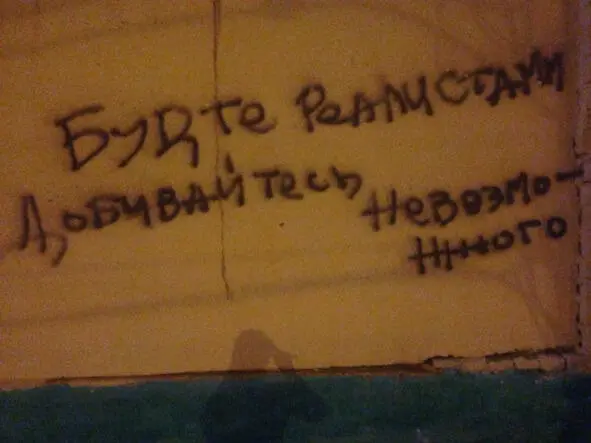 Будте реалистами
Добивайтесь
невозмо-
жного